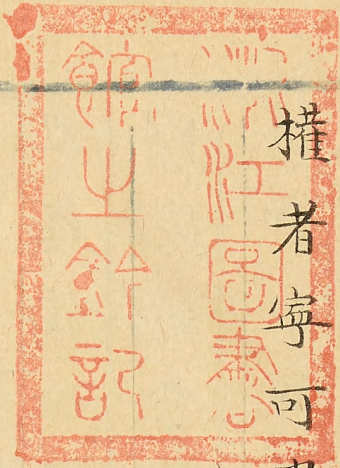 權者寧可
浙江圖書
館之鈐記